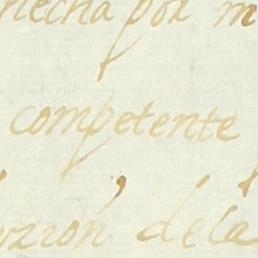 hecha por m
competente
zion dela